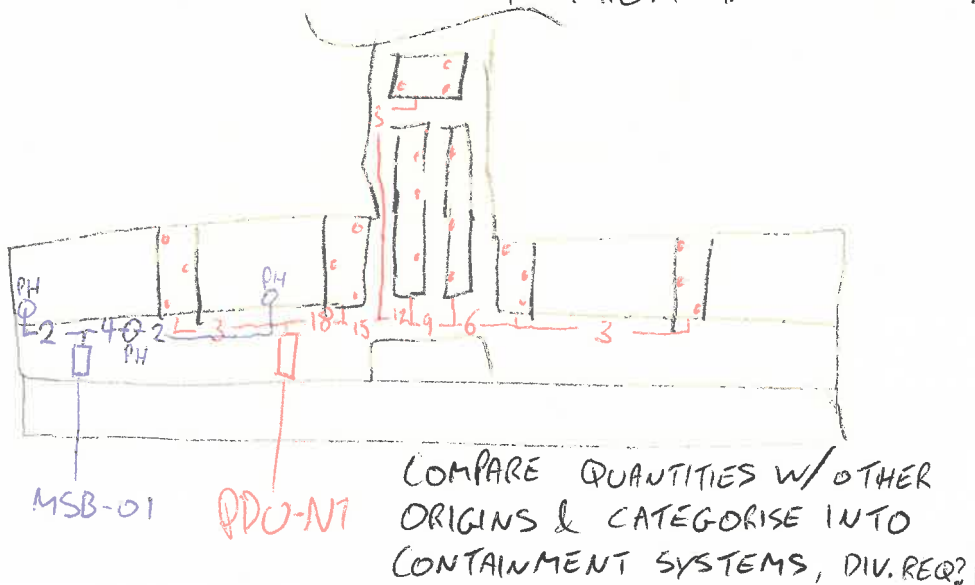 PH
PH
2 4 2 3 18 15 12 9 6 3
3
PH
MSB-01
PDU-N1
COMPARE QUANTITIES W/ OTHER
ORIGINS & CATEGORISE INTO
CONTAINMENT SYSTEMS, DIV. REQ?